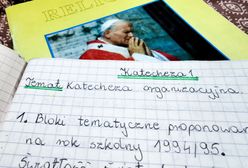 RELI
Katecheza 1
Temat: Katecheza organizacyjna
1. Bloki tematyczne proponowan
na rok szkolny 1994/95.